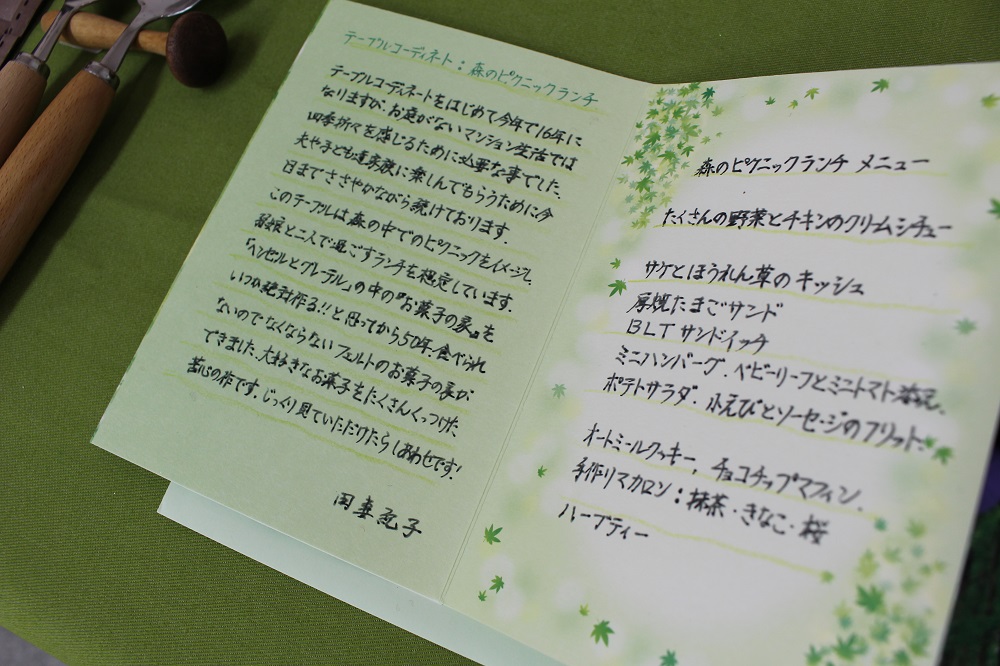 テーブルコーディネート：森のピクニックランチ
テーブルコーディネートをはじめて今年で16年に
なりますが、お庭がないマンション生活では
四季折々を感じるために必要な事でした。
夫や子ども達家族に楽しんでもらうために今
日までささやかながら続けております。
このテーブルは森の中でのピクニックをイメージし、
と二人で過ごすランチを想定しています。
「ヘンゼルとグレーテル」の中の『お菓子の家』を
いつか絶対作る!!と思ってから50年、食べられ
ないのでなくならないフェルトのお菓子の家が
できました。大好きなお菓子をたくさんくっつけた、
苦心の作です。じっくり見ていただけたらしあわせです!
子
森のピクニックランチ メニュー
たくさんの野菜とチキンのクリームシチュー
サケとほうれん草のキッシュ
厚焼たまごサンド
BLTサンドイッチ
ミニハンバーグ、ベビーリーフとミニトマト添え、
ポテトサラダ、小えびとソーセージのフリット、
オートミールクッキー、チョコチップマフィン、
手作りマカロン：抹茶・きなこ・桜
ハーブティー